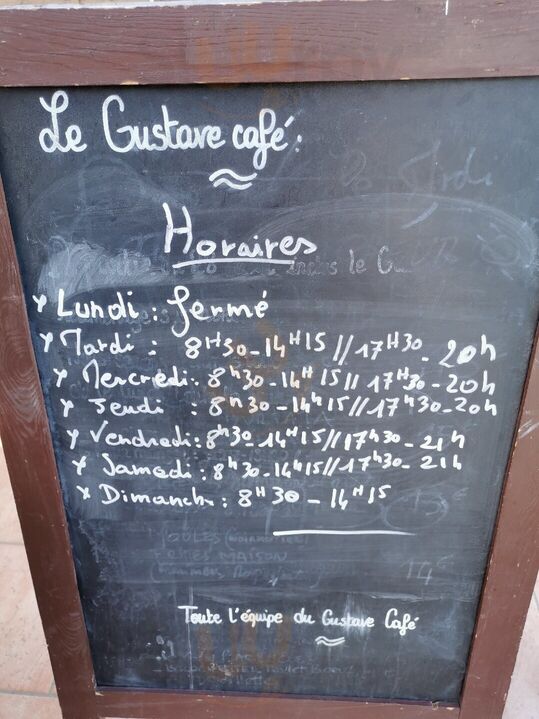 Le Gustave café:
Horaires
Lundi: fermé
Mardi: 8H30-14H15//17H30-20h
Mercredi: 8h30-14H15//17H30-20h
Jeudi: 8h30-14h15//17h30-20h
Vendredi: 8h30-14H15//17h30-21h
Samedi: 8h30-14h15//17h30-21h
Dimanche: 8H30-14H15
MAISON
14€
Toute l'équipe du Gustave Café